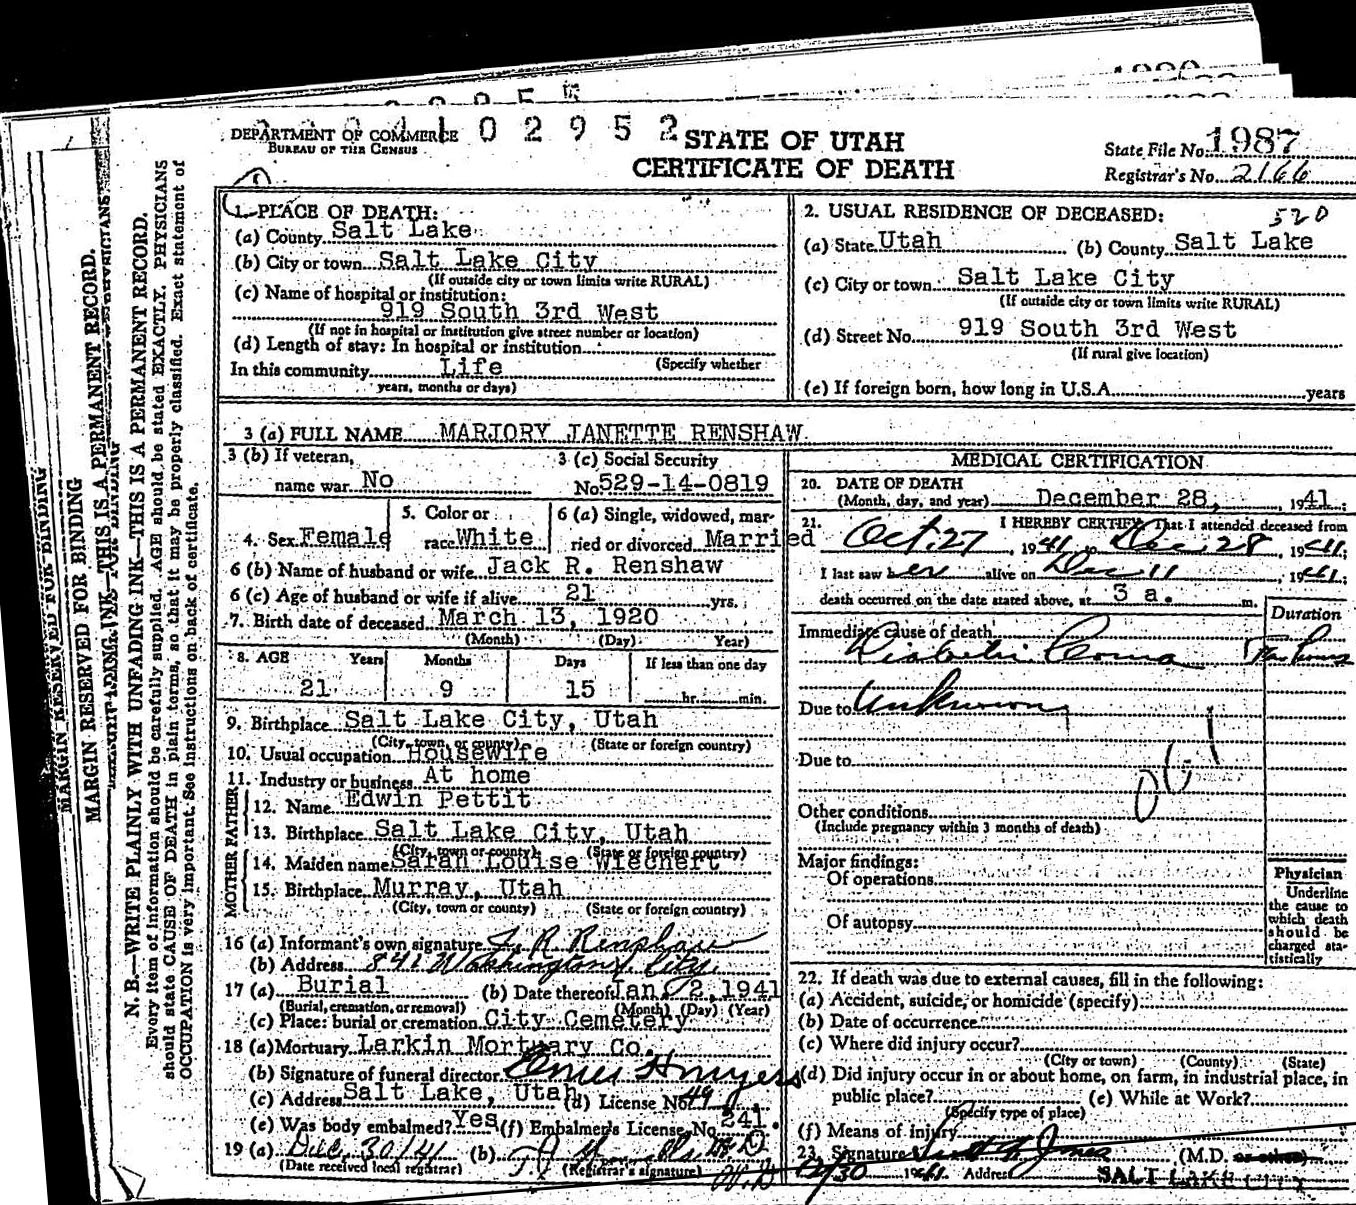 DEPARTMENT OF COMMERCE
BUREAU OF THE CENSUS
102952
STATE OF UTAH
CERTIFICATE OF DEATH
State File No. 1987
Registrar's No. 2166
1. PLACE OF DEATH:
(a) County Salt Lake
(b) City or town Salt Lake City
(If outside city or town limits write RURAL)
(c) Name of hospital or institution:
919 South 3rd West
(If not in hospital or institution give street number or location)
(d) Length of stay: In hospital or institution
(Specify whether
In this community Life
years, months or days)
2. USUAL RESIDENCE OF DECEASED: 520
(a) State Utah (b) County Salt Lake
(c) City or town Salt Lake City
(If outside city or town limits write RURAL)
(d) Street No. 919 South 3rd West
(If rural give location)
(e) If foreign born, how long in U.S.A. years
3 (a) FULL NAME MARJORY JANETTE RENSHAW
3 (b) If veteran, name war No
3 (c) Social Security No. 529-14-0819
4. Sex Female
5. Color or race White
6 (a) Single, widowed, married or divorced Married
6 (b) Name of husband or wife Jack R. Renshaw
6 (c) Age of husband or wife if alive 21 yrs.
7. Birth date of deceased March 13, 1920
(Month) (Day) Year)
8. AGE Years Months Days If less than one day
21 9 15 hr. min.
9. Birthplace Salt Lake City, Utah
(City, town, or county) (State or foreign country)
10. Usual occupation Housewife
11. Industry or business At home
FATHER
12. Name Edwin Pettit
13. Birthplace Salt Lake City, Utah
(City, town or county) (State or foreign country)
MOTHER
14. Maiden name Sarah Louise Wiechert
15. Birthplace Murray, Utah
(City, town or county) (State or foreign country)
16 (a) Informant's own signature J. R. Renshaw
(b) Address 841 Washington St. City.
17 (a) Burial (b) Date thereof Jan. 2, 1941
(Burial, cremation, or removal) (Month) (Day) (Year)
(c) Place: burial or cremation City Cemetery
18 (a) Mortuary Larkin Mortuary Co.
(b) Signature of funeral director
(c) Address Salt Lake, Utah (d) License No. 49
(e) Was body embalmed? Yes (f) Embalmer's License No. 241.
19 (a) Dec. 30/41 (b)
(Date received local registrar) (Registrar's signature)
MEDICAL CERTIFICATION
20. DATE OF DEATH
(Month, day, and year) December 28, 1941;
21. I HEREBY CERTIFY, That I attended deceased from
Oct. 27, 1941 to Dec. 28, 1941;
I last saw her alive on Dec 11, 1941;
death occurred on the date stated above, at 3 a. m.
Duration
Immediate cause of death
Diabetic Coma
Due to Unknown
061
Due to
Other conditions
(Include pregnancy within 3 months of death)
Major findings:
Of operations
Of autopsy
Physician
Underline
the cause to
which death
should be
charged sta-
tistically
22. If death was due to external causes, fill in the following:
(a) Accident, suicide, or homicide (specify)
(b) Date of occurrence
(c) Where did injury occur?
(City or town) (County) (State)
(d) Did injury occur in or about home, on farm, in industrial place, in
public place? (e) While at Work?
(Specify type of place)
(f) Means of injury
23. Signature Jones (M.D. or other)
12/30 1941 Address SALT LAKE CITY
MARGIN RESERVED FOR BINDING
MARGIN RESERVED FOR BINDING
N. B.—WRITE PLAINLY WITH UNFADING INK—THIS IS A PERMANENT RECORD.
Every item of information should be carefully supplied. AGE should be stated EXACTLY. PHYSICIANS
should state CAUSE OF DEATH in plain terms, so that it may be properly classified. Exact statement of
OCCUPATION is very important. See instructions on back of certificate.